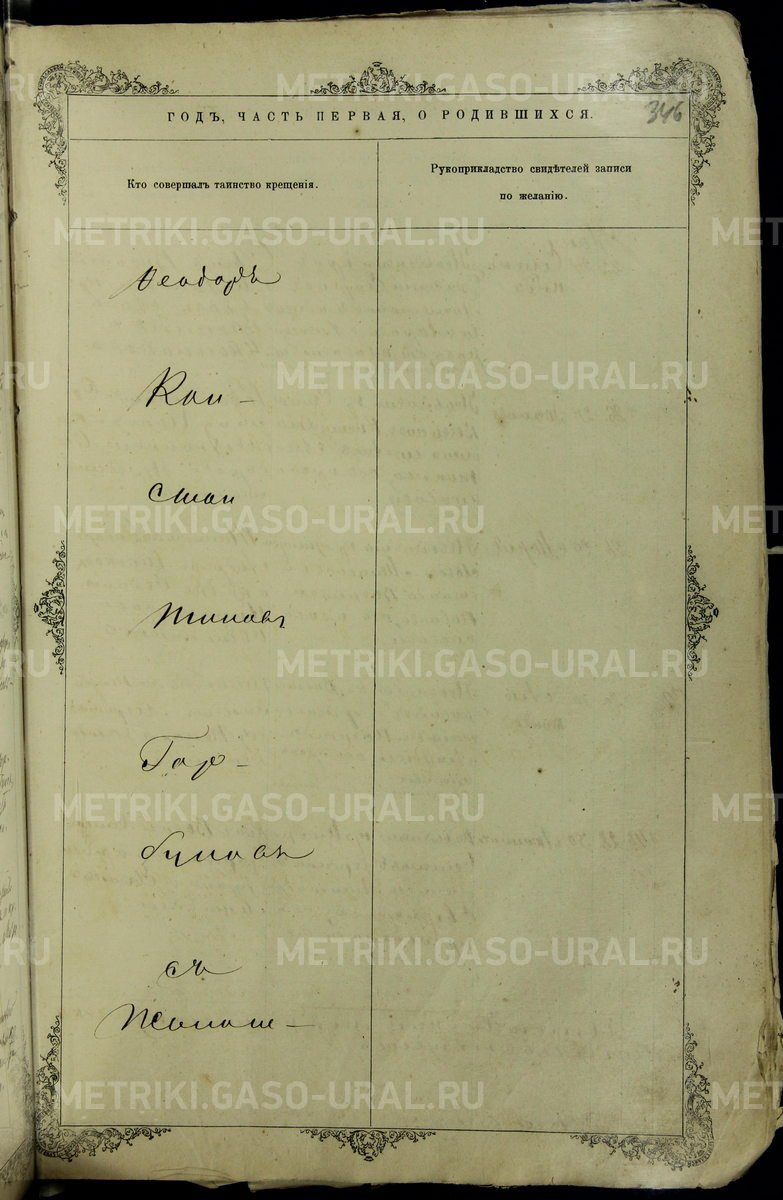 346
ГОДЪ, ЧАСТЬ ПЕРВАЯ, О РОДИВШИХСЯ.
Кто совершалъ таинство крещенія.
Рукоприкладство свидѣтелей записи
по желанію.
Ѳеодоръ
Кон-
стан
тиновъ
Гор-
буновъ
съ
METRIKI.GASO-URAL.RU